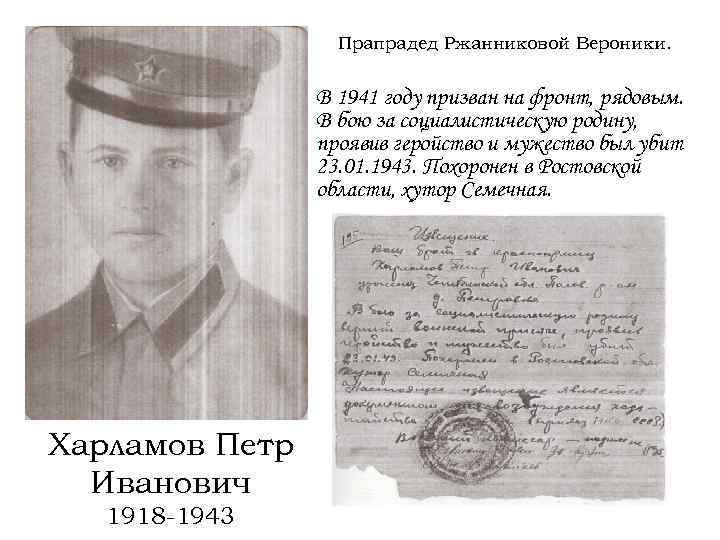 Прапрадед Ржанниковой Вероники.
В 1941 году призван на фронт, рядовым.
В бою за социалистическую родину,
проявив геройство и мужество был убит
23.01.1943. Похоронен в Ростовской
области, хутор Семечная.
Извещение
Ваш брат кр красноармеец
Харламов Петр Иванович
уроженец Челябинской обл.
д.
В бою за социалистическую родину
верный воинской присяге, проявив
геройство и мужество был убит
23.01.43. Похоронен в Ростовской обл.
хутор Семечная
Настоящее извещение является
документом возбуждения хода-
тайства (приказ НКО СССР)
Харламов Петр
Иванович
1918-1943